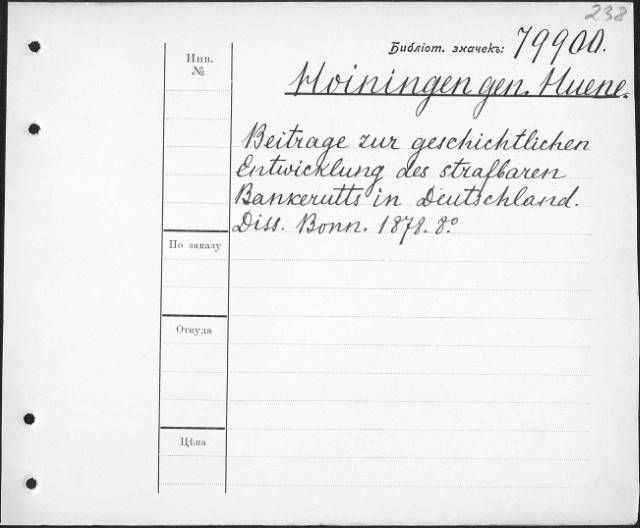 238
Библіот. значекъ: 79900.
Инв.
№
Hoiningen gen. Huene.
Beitrage zur geschichtlichen
Entwicklung des strafbaren
Bankerutts in Deutschland.
Diss. Bonn. 1878. 8º
По заказу
Откуда
Цѣна